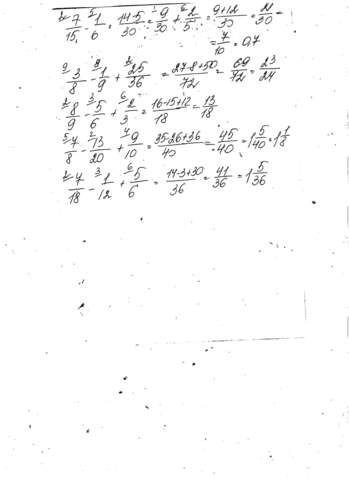 7/15 - 1/6 = 14-5/30 = 9/30 + 2/5 = 9+12/30 = 21/30 =
= 7/10 = 0,7
3/8 - 1/9 + 25/36 = 27-8+50/72 = 69/72 = 23/24
8/9 - 5/6 + 2/3 = 16-15+12/18 = 13/18
7/8 - 13/20 + 9/10 = 35-26+36/40 = 45/40 = 1 5/40 = 1 1/8
7/18 - 1/12 + 5/6 = 14-3+30/36 = 41/36 = 1 5/36